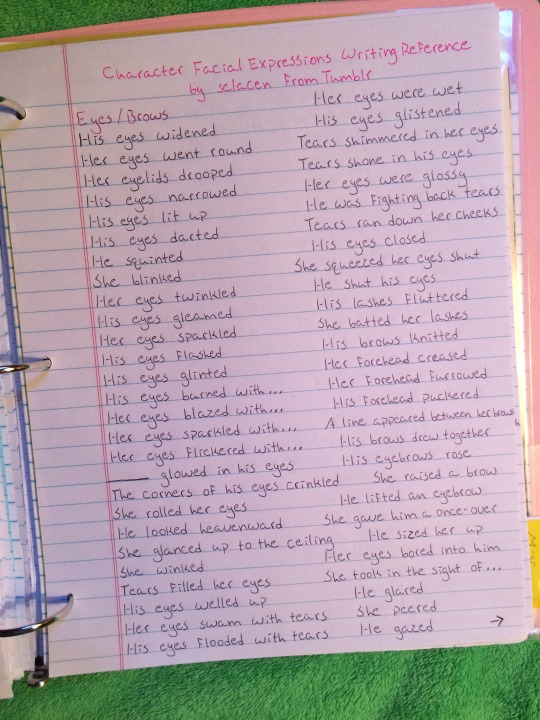 Character Facial Expressions Writing Reference
by selacen from Tumblr
Eyes/Brows
His eyes widened
Her eyes went round
Her eyelids drooped
His eyes narrowed
His eyes lit up
His eyes darted
He squinted
She blinked
Her eyes twinkled
His eyes gleamed
Her eyes sparkled
His eyes flashed
His eyes glinted
His eyes burned with...
Her eyes blazed with...
Her eyes sparkled with...
Her eyes flickered with...
_____ glowed in his eyes
The corners of his eyes crinkled
She rolled her eyes
He looked heavenward
She glanced up to the ceiling
She winked
Tears filled her eyes
His eyes welled up
Her eyes swam with tears
His eyes flooded with tears
Her eyes were wet
His eyes glistened
Tears shimmered in her eyes
Tears shone in his eyes
Her eyes were glossy
He was fighting back tears
Tears ran down her cheeks
His eyes closed
She squeezed her eyes shut
He shut his eyes
His lashes fluttered
She batted her lashes
His brows knitted
Her forehead creased
Her forehead furrowed
His forehead puckered
A line appeared between her brows
His brows drew together
His eyebrows rose
She raised a brow
He lifted an eyebrow
She gave him a once-over
He sized her up
Her eyes bored into him
She took in the sight of...
He glared
She peered
He gazed →